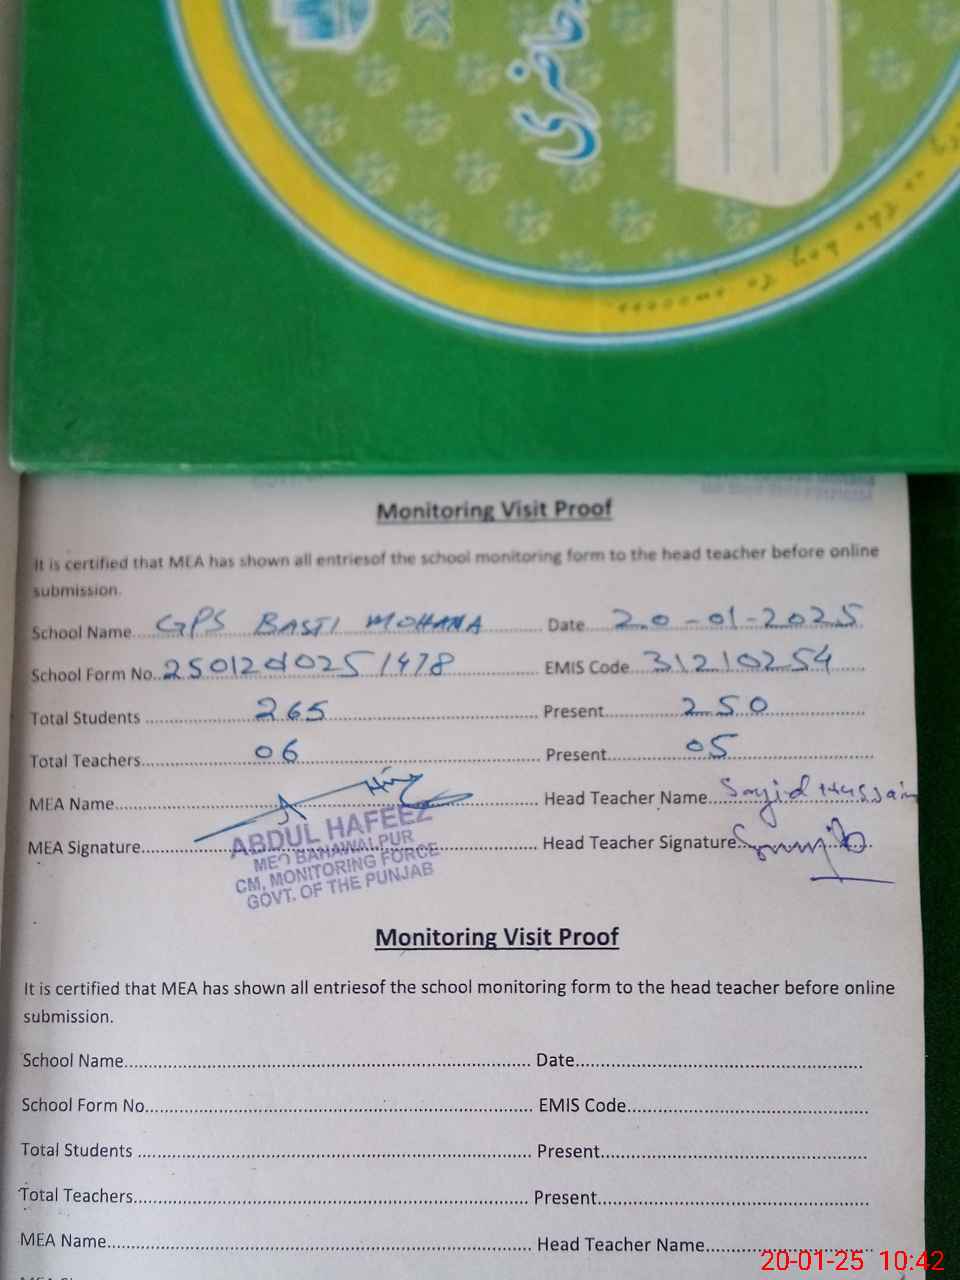 حاضری
Monitoring Visit Proof
It is certified that MEA has shown all entriesof the school monitoring form to the head teacher before online
submission.
School Name GPS BASTI MOHANA Date 20-01-2025
School Form No. EMIS Code 31210254
Total Students 265 Present 250
Total Teachers 06 Present 05
MEA Name Head Teacher Name Sajid Hussain
MEA Signature Head Teacher Signature
ABDUL HAFEEZ
MEO BAHAWALPUR
CM, MONITORING FORCE
GOVT. OF THE PUNJAB
Monitoring Visit Proof
It is certified that MEA has shown all entriesof the school monitoring form to the head teacher before online
submission.
School Name Date
School Form No. EMIS Code
Total Students Present
Total Teachers Present
MEA Name Head Teacher Name
20-01-25 10:42